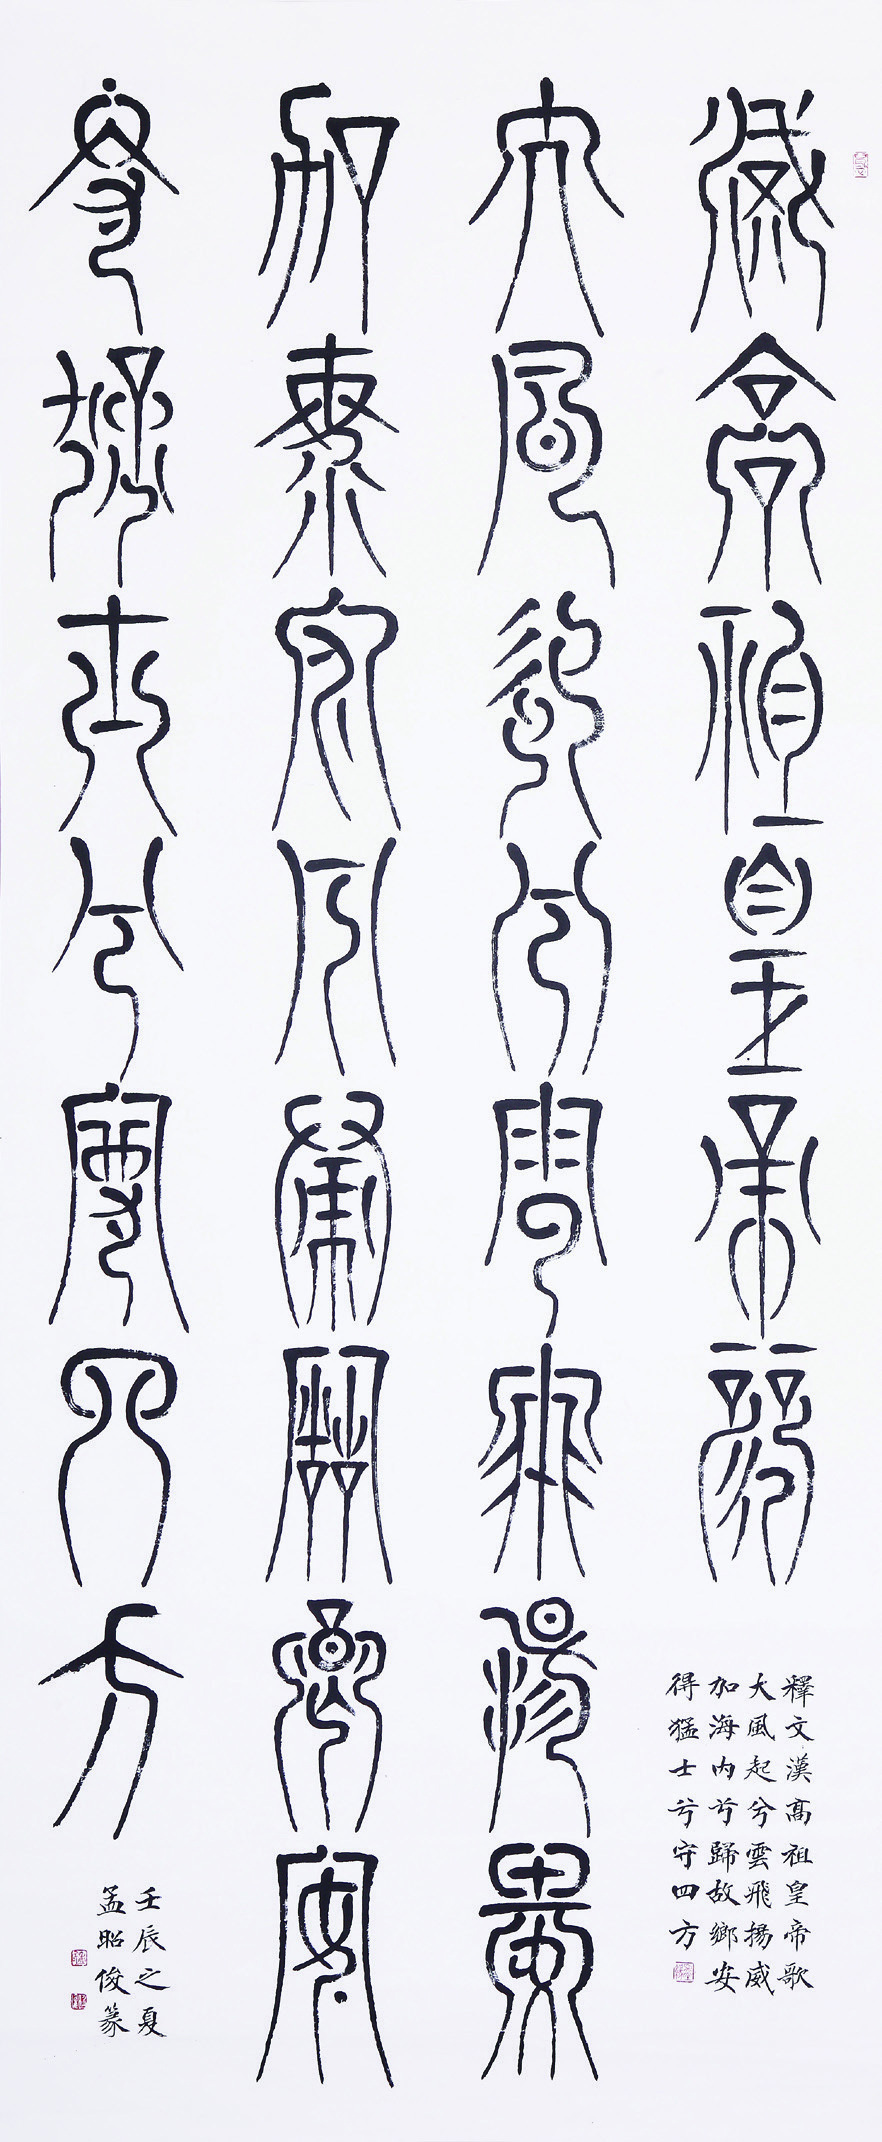 漢高祖皇帝歌
大風起兮雲飛揚威
加海內兮歸故鄉安
得猛士兮守四方
釋文漢高祖皇帝歌
大風起兮雲飛揚威
加海內兮歸故鄉安
得猛士兮守四方
壬辰之夏
孟昭俊篆